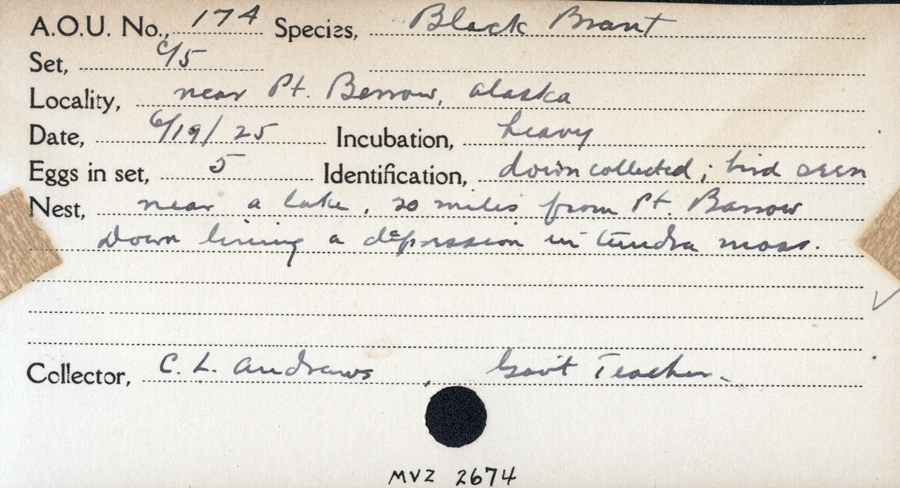 A.O.U. No., 174 Species, Black Brant
Set, c/5
Locality, near Pt. Barrow, Alaska
Date, 6/19/25 Incubation, heavy
Eggs in set, 5 Identification, down collected; bird seen
Nest, near a lake, 20 miles from Pt. Barrow
Down lining a depression in tundra moss.
Collector, C. L. Andrews, Gov't Teacher.
MVZ 2674